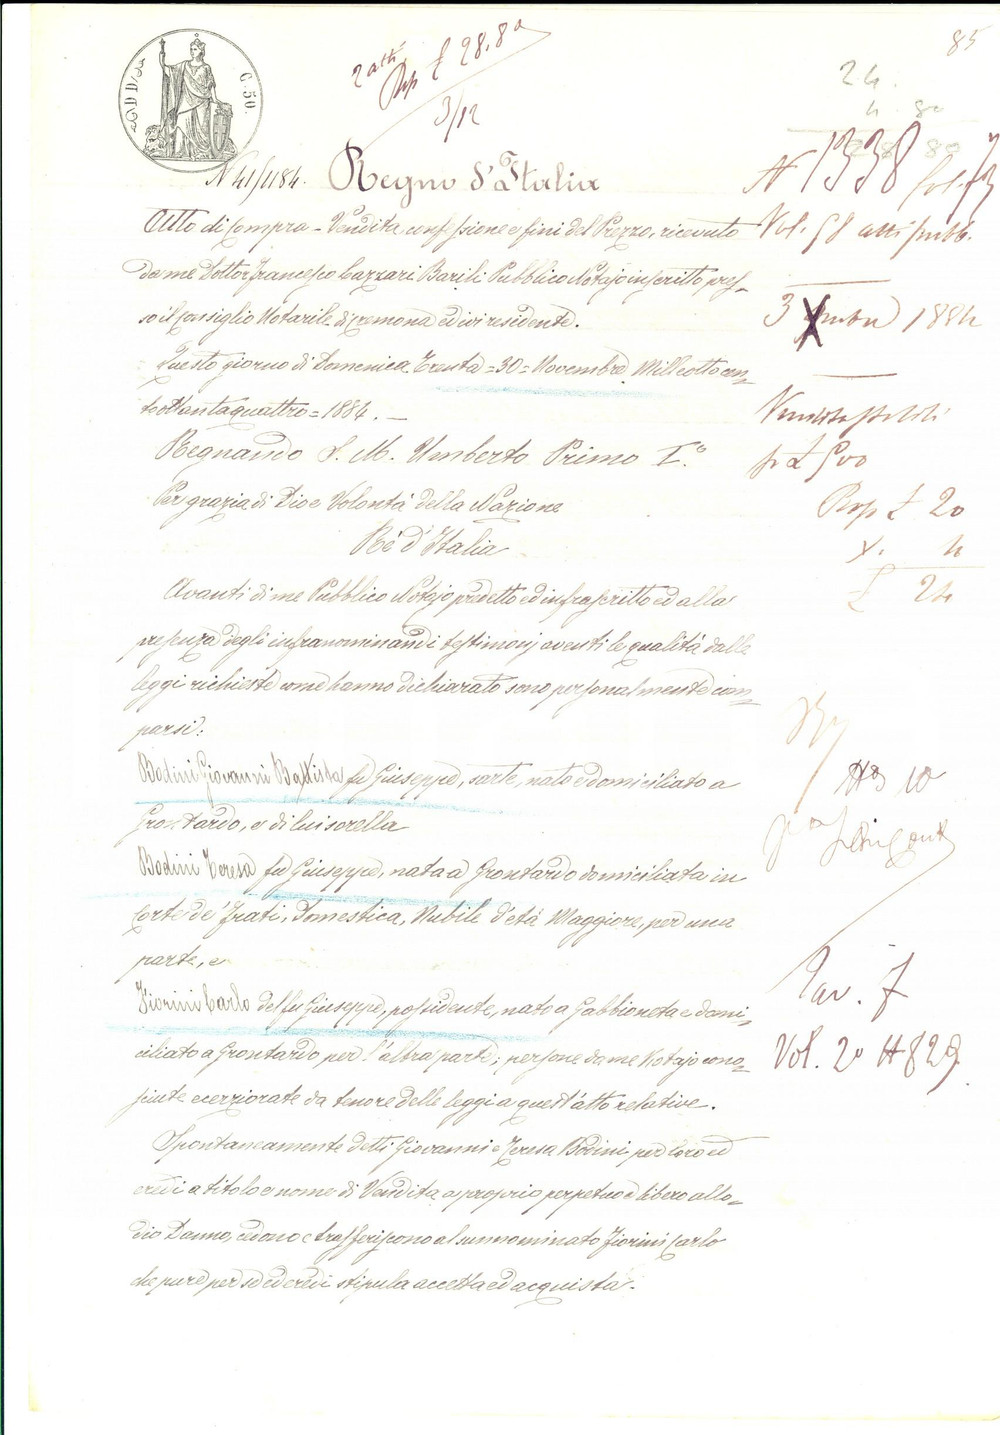 85
2 atti
Rep £ 28,80
3/12
24
4 80
28 80
C. 50.
N 41/1184. Regno d'Italia
N 1338 fol. 73
Atto di Compra-Vendita, confessione e fini del Prezzo, ricevuto
Vol. 98 atti pubb.
da me Dottor Francesco Cazzani Barili Pubblico Notajo inscritto pres-
so il Consiglio Notarile di Cremona ed ivi residente.
3 Xmbre 1884
Questo giorno di Domenica Trenta =30= Novembre Mille otto cen-
to ottantaquattro = 1884. —
Regnando S. M. Umberto Primo I.°
p £ 500
Per grazia di Dio e Volontà della Nazione
Rep £ 20
Rè d'Italia
4
£ 24
Avanti di me Pubblico Notajo predetto ed infrascritto ed alla
presenza degli infranominandi testimonj aventi le qualità dalle
leggi richieste come hanno dichiarato sono personalmente com-
parsi:
Bodini Giovanni Battista fu Giuseppe, sarte, nato e domiciliato a
N° 10
Grontardo, e di lui sorella
Bodini Teresa fu Giuseppe, nata a Grontardo domiciliata in
Corte de' Frati, Domestica, Nubile d'età Maggiore, per una
parte, e
Fiorini Carlo del fu Giuseppe, possidente, nato a Gabbioneta e domi-
Tav. F
ciliato a Grontardo per l'altra parte; persone da me Notajo cono-
Vol. 20 N 829
sciute eccezionate da tenore delle leggi a quest'atto relative.
Spontaneamente detti Giovanni e Teresa Bodini per loro ed
eredi a titolo e nome di Vendita a proprio perpetuo e libero allo-
dio Danno, cedono e trasferiscono al sunnominato Fiorini Carlo
che pure per se ed eredi stipula accetta ed acquista.